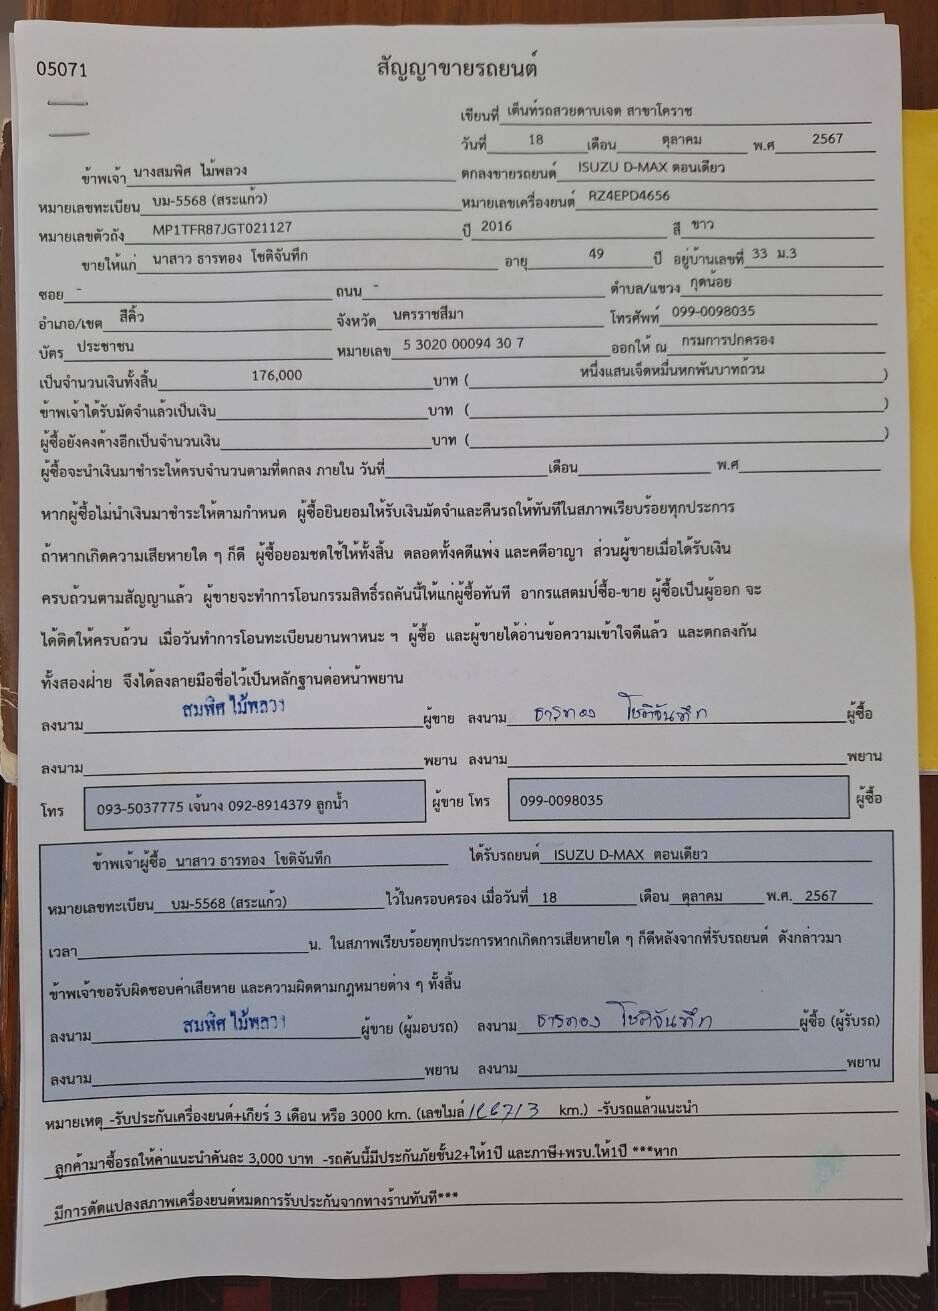 05071
สัญญาขายรถยนต์
เขียนที่ เต็นท์รถสวยดาบเจต สาขาโคราช
วันที่ 18 เดือน ตุลาคม พ.ศ 2567
ข้าพเจ้า นางสมพิศ ไม้พลวง ตกลงขายรถยนต์ ISUZU D-MAX ตอนเดียว
หมายเลขทะเบียน บม-5568 (สระแก้ว) หมายเลขเครื่องยนต์ RZ4EPD4656
หมายเลขตัวถัง MP1TFR87JGT021127 ปี 2016 สี ขาว
ขายให้แก่ นาสาว ธารทอง โชติจันทึก อายุ 49 ปี อยู่บ้านเลขที่ 33 ม.3
ซอย - ถนน - ตำบล/แขวง กุดน้อย
อำเภอ/เขต สีคิ้ว จังหวัด นครราชสีมา โทรศัพท์ 099-0098035
บัตร ประชาชน หมายเลข 5 3020 00094 30 7 ออกให้ ณ กรมการปกครอง
เป็นจำนวนเงินทั้งสิ้น 176,000 บาท ( หนึ่งแสนเจ็ดหมื่นหกพันบาทถ้วน )
ข้าพเจ้าได้รับมัดจำแล้วเป็นเงิน บาท ( )
ผู้ซื้อยังคงค้างอีกเป็นจำนวนเงิน บาท ( )
ผู้ซื้อจะนำเงินมาชำระให้ครบจำนวนตามที่ตกลง ภายใน วันที่ เดือน พ.ศ
หากผู้ซื้อไม่นำเงินมาชำระให้ตามกำหนด ผู้ซื้อยินยอมให้รับเงินมัดจำและคืนรถให้ทันทีในสภาพเรียบร้อยทุกประการ
ถ้าหากเกิดความเสียหายใด ๆ ก็ดี ผู้ซื้อยอมชดใช้ให้ทั้งสิ้น ตลอดทั้งคดีแพ่ง และคดีอาญา ส่วนผู้ขายเมื่อได้รับเงิน
ครบถ้วนตามสัญญาแล้ว ผู้ขายจะทำการโอนกรรมสิทธิ์รถคันนี้ให้แก่ผู้ซื้อทันที อากรแสตมป์ซื้อ-ขาย ผู้ซื้อเป็นผู้ออก จะ
ได้ติดให้ครบถ้วน เมื่อวันทำการโอนทะเบียนยานพาหนะ ฯ ผู้ซื้อ และผู้ขายได้อ่านข้อความเข้าใจดีแล้ว และตกลงกัน
ทั้งสองฝ่าย จึงได้ลงลายมือชื่อไว้เป็นหลักฐานต่อหน้าพยาน
ลงนาม สมพิศ ไม้พลวง ผู้ขาย ลงนาม ธารทอง โชติจันทึก ผู้ซื้อ
ลงนาม พยาน ลงนาม พยาน
โทร 093-5037775 เจ้นาง 092-8914379 ลูกน้ำ ผู้ขาย โทร 099-0098035 ผู้ซื้อ
ข้าพเจ้าผู้ซื้อ นาสาว ธารทอง โชติจันทึก ได้รับรถยนต์ ISUZU D-MAX ตอนเดียว
หมายเลขทะเบียน บม-5568 (สระแก้ว) ไว้ในครอบครอง เมื่อวันที่ 18 เดือน ตุลาคม พ.ศ. 2567
เวลา น. ในสภาพเรียบร้อยทุกประการหากเกิดการเสียหายใด ๆ ก็ดีหลังจากที่รับรถยนต์ ดังกล่าวมา
ข้าพเจ้าขอรับผิดชอบค่าเสียหาย และความผิดตามกฎหมายต่าง ๆ ทั้งสิ้น
ลงนาม สมพิศ ไม้พลวง ผู้ขาย (ผู้มอบรถ) ลงนาม ธารทอง โชติจันทึก ผู้ซื้อ (ผู้รับรถ)
ลงนาม พยาน ลงนาม พยาน
หมายเหตุ -รับประกันเครื่องยนต์+เกียร์ 3 เดือน หรือ 3000 km. (เลขไมล์ km.) -รับรถแล้วแนะนำ
ลูกค้ามาซื้อรถให้ค่าแนะนำคันละ 3,000 บาท -รถคันนี้มีประกันภัยชั้น2+ให้1ปี และภาษี+พรบ.ให้1ปี ***หาก
มีการดัดแปลงสภาพเครื่องยนต์หมดการรับประกันจากทางร้านทันที***